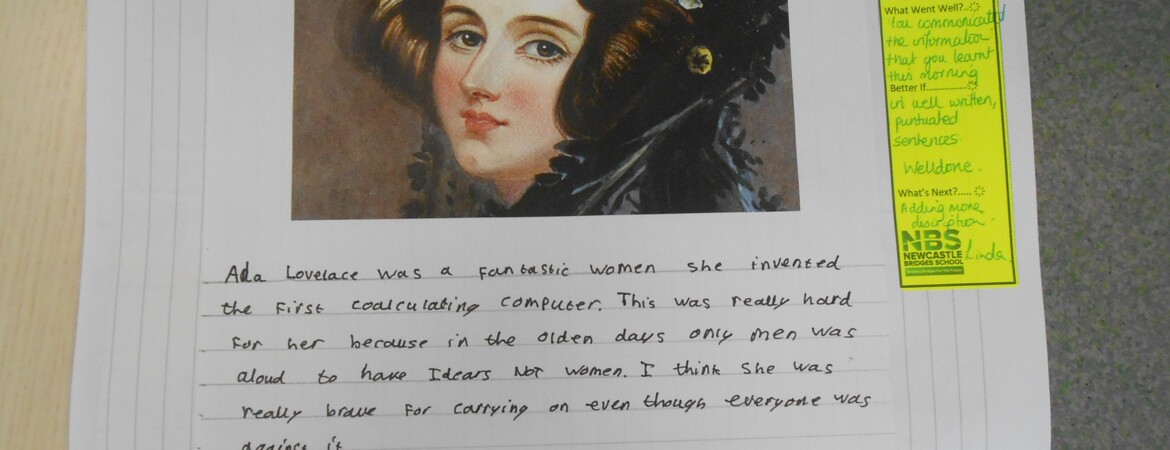 Ada Lovelace was a fantastic women she invented
the first coalculating computer. This was really hard
for her because in the olden days only men was
aloud to have Idears Not women. I think she was
really brave for carrying on even though everyone was
againce it
What Went Well?...
You communicated
the information
that you learnt
this morning
Better If...............
in well written,
puntuated
sentences.
Welldone.
What's Next?.....
Adding more
description
NBS
NEWCASTLE
BRIDGES SCHOOL
Linda.